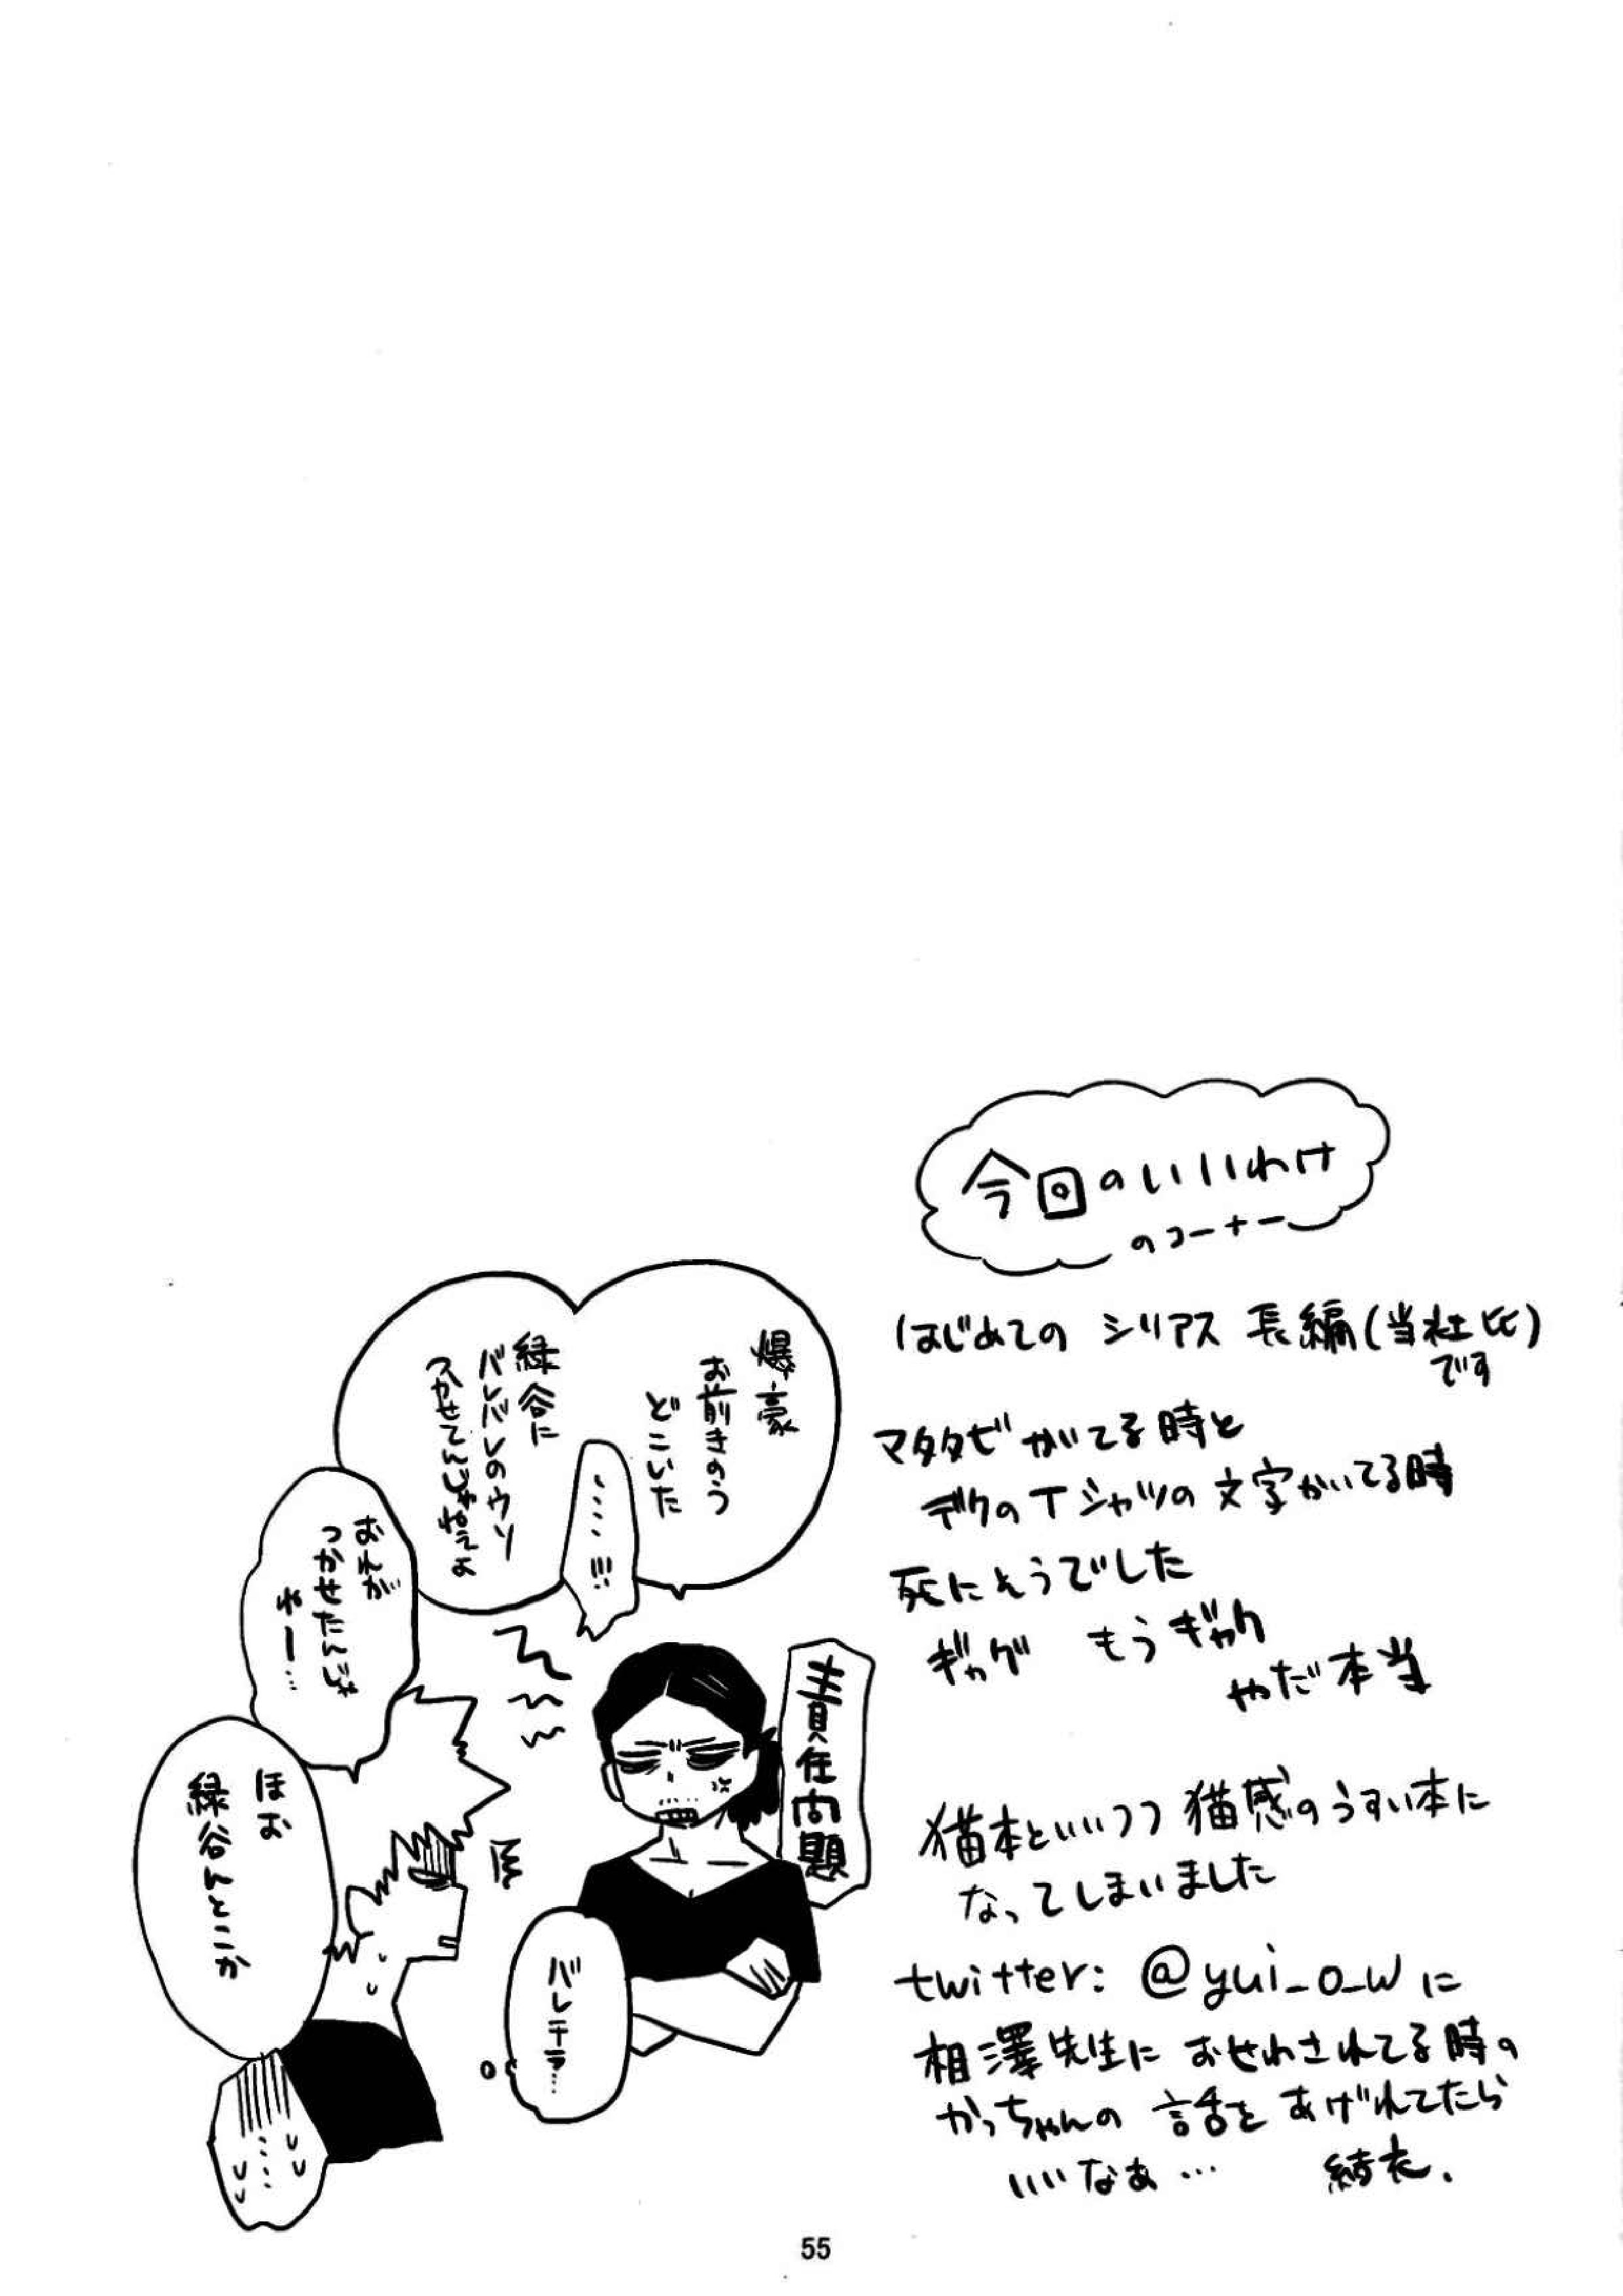 今回のいいわけ
のコーナー
はじめての シリアス 長編(当社比)
です
マタタビかいてる時と
デクのTシャツの文字かいてる時
死にそうでした
ギャグ もうギャグ
やだ本当
猫本といいつつ猫感のうすい本に
なってしまいました
twitter: @yui_o_wに
相澤先生におせわされてる時の
かっちゃんの 話をあげれてたら
いいなぁ…
結衣.
爆豪
お前きのう
どこいた
……!!!
緑谷に
バレバレのウソ
つかせてんじゃねえよ
おれが
つかせたんじゃ
ねー…
ほお
緑谷んとこか
……
責任問題
バレテラ…
55